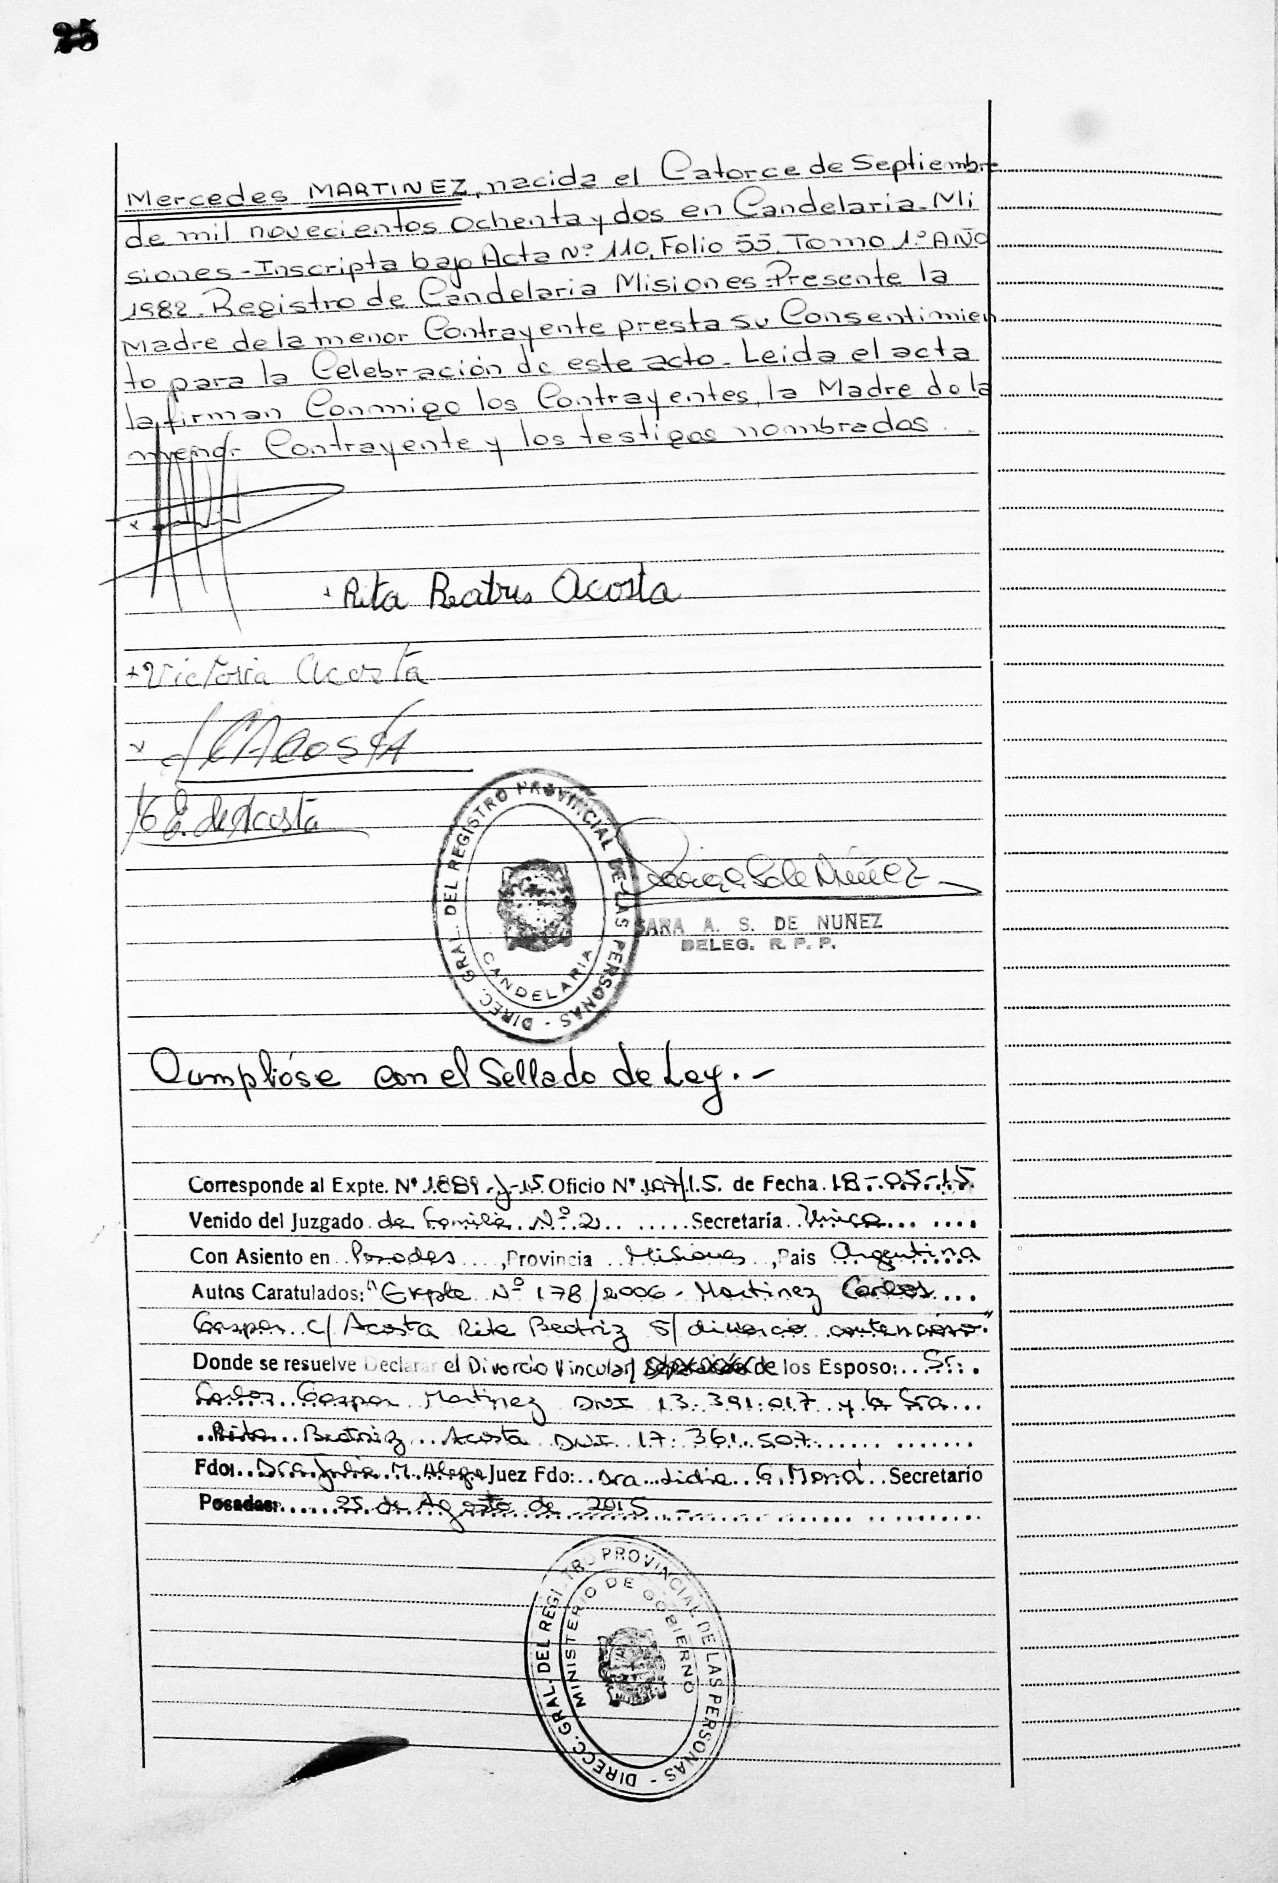 25
Mercedes MARTINEZ, nacida el Catorce de Septiembre
de mil novecientos ochenta y dos en Candelaria. Mi
siones - Inscripta bajo Acta Nº 110, Folio 55, Tomo 1.º AÑO
1982. Registro de Candelaria Misiones. Presente la
Madre de la menor Contrayente presta su Consentimien
to para la Celebración de este acto. Leida el acta
la firman Conmigo los Contrayentes, la Madre de la
menor Contrayente y los testigos nombrados.
Rita Beatris Acosta
Victoria Acosta
ACOSTA
E. de Acosta
DIREC. GRAL. DEL REGISTRO PROVINCIAL DE LAS PERSONAS -
CANDELARIA
SARA A. S. DE NUÑEZ
DELEG. R. P. P.
Cumplióse con el Sellado de Ley. -
Corresponde al Expte. Nº 1889-J-15 Oficio Nº 107/15 de Fecha 18-05-15
Venido del Juzgado de Familia Nº 2 Secretaría Unica
Con Asiento en Posadas, Provincia Misiones, País Argentina
Autos Caratulados: "Expte Nº 178/2006 - Martinez Carlos
Gaspar c/ Acosta Rita Beatriz s/ divorcio contencioso"
Donde se resuelve Declarar el Divorcio Vincular/ de los Esposo: Sr.
Carlos Gaspar Martinez DNI 13.391.017 y la Sra
Rita Beatriz Acosta DNI 17.361.507
Fdo: Dra. Julia M. Juez Fdo: Dra. Lidia G. Secretario
Posadas: 25 de Agosto de 2015 -
DIRECC. GRAL. DEL REGISTRO PROVINCIAL DE LAS PERSONAS -
MINISTERIO DE GOBIERNO